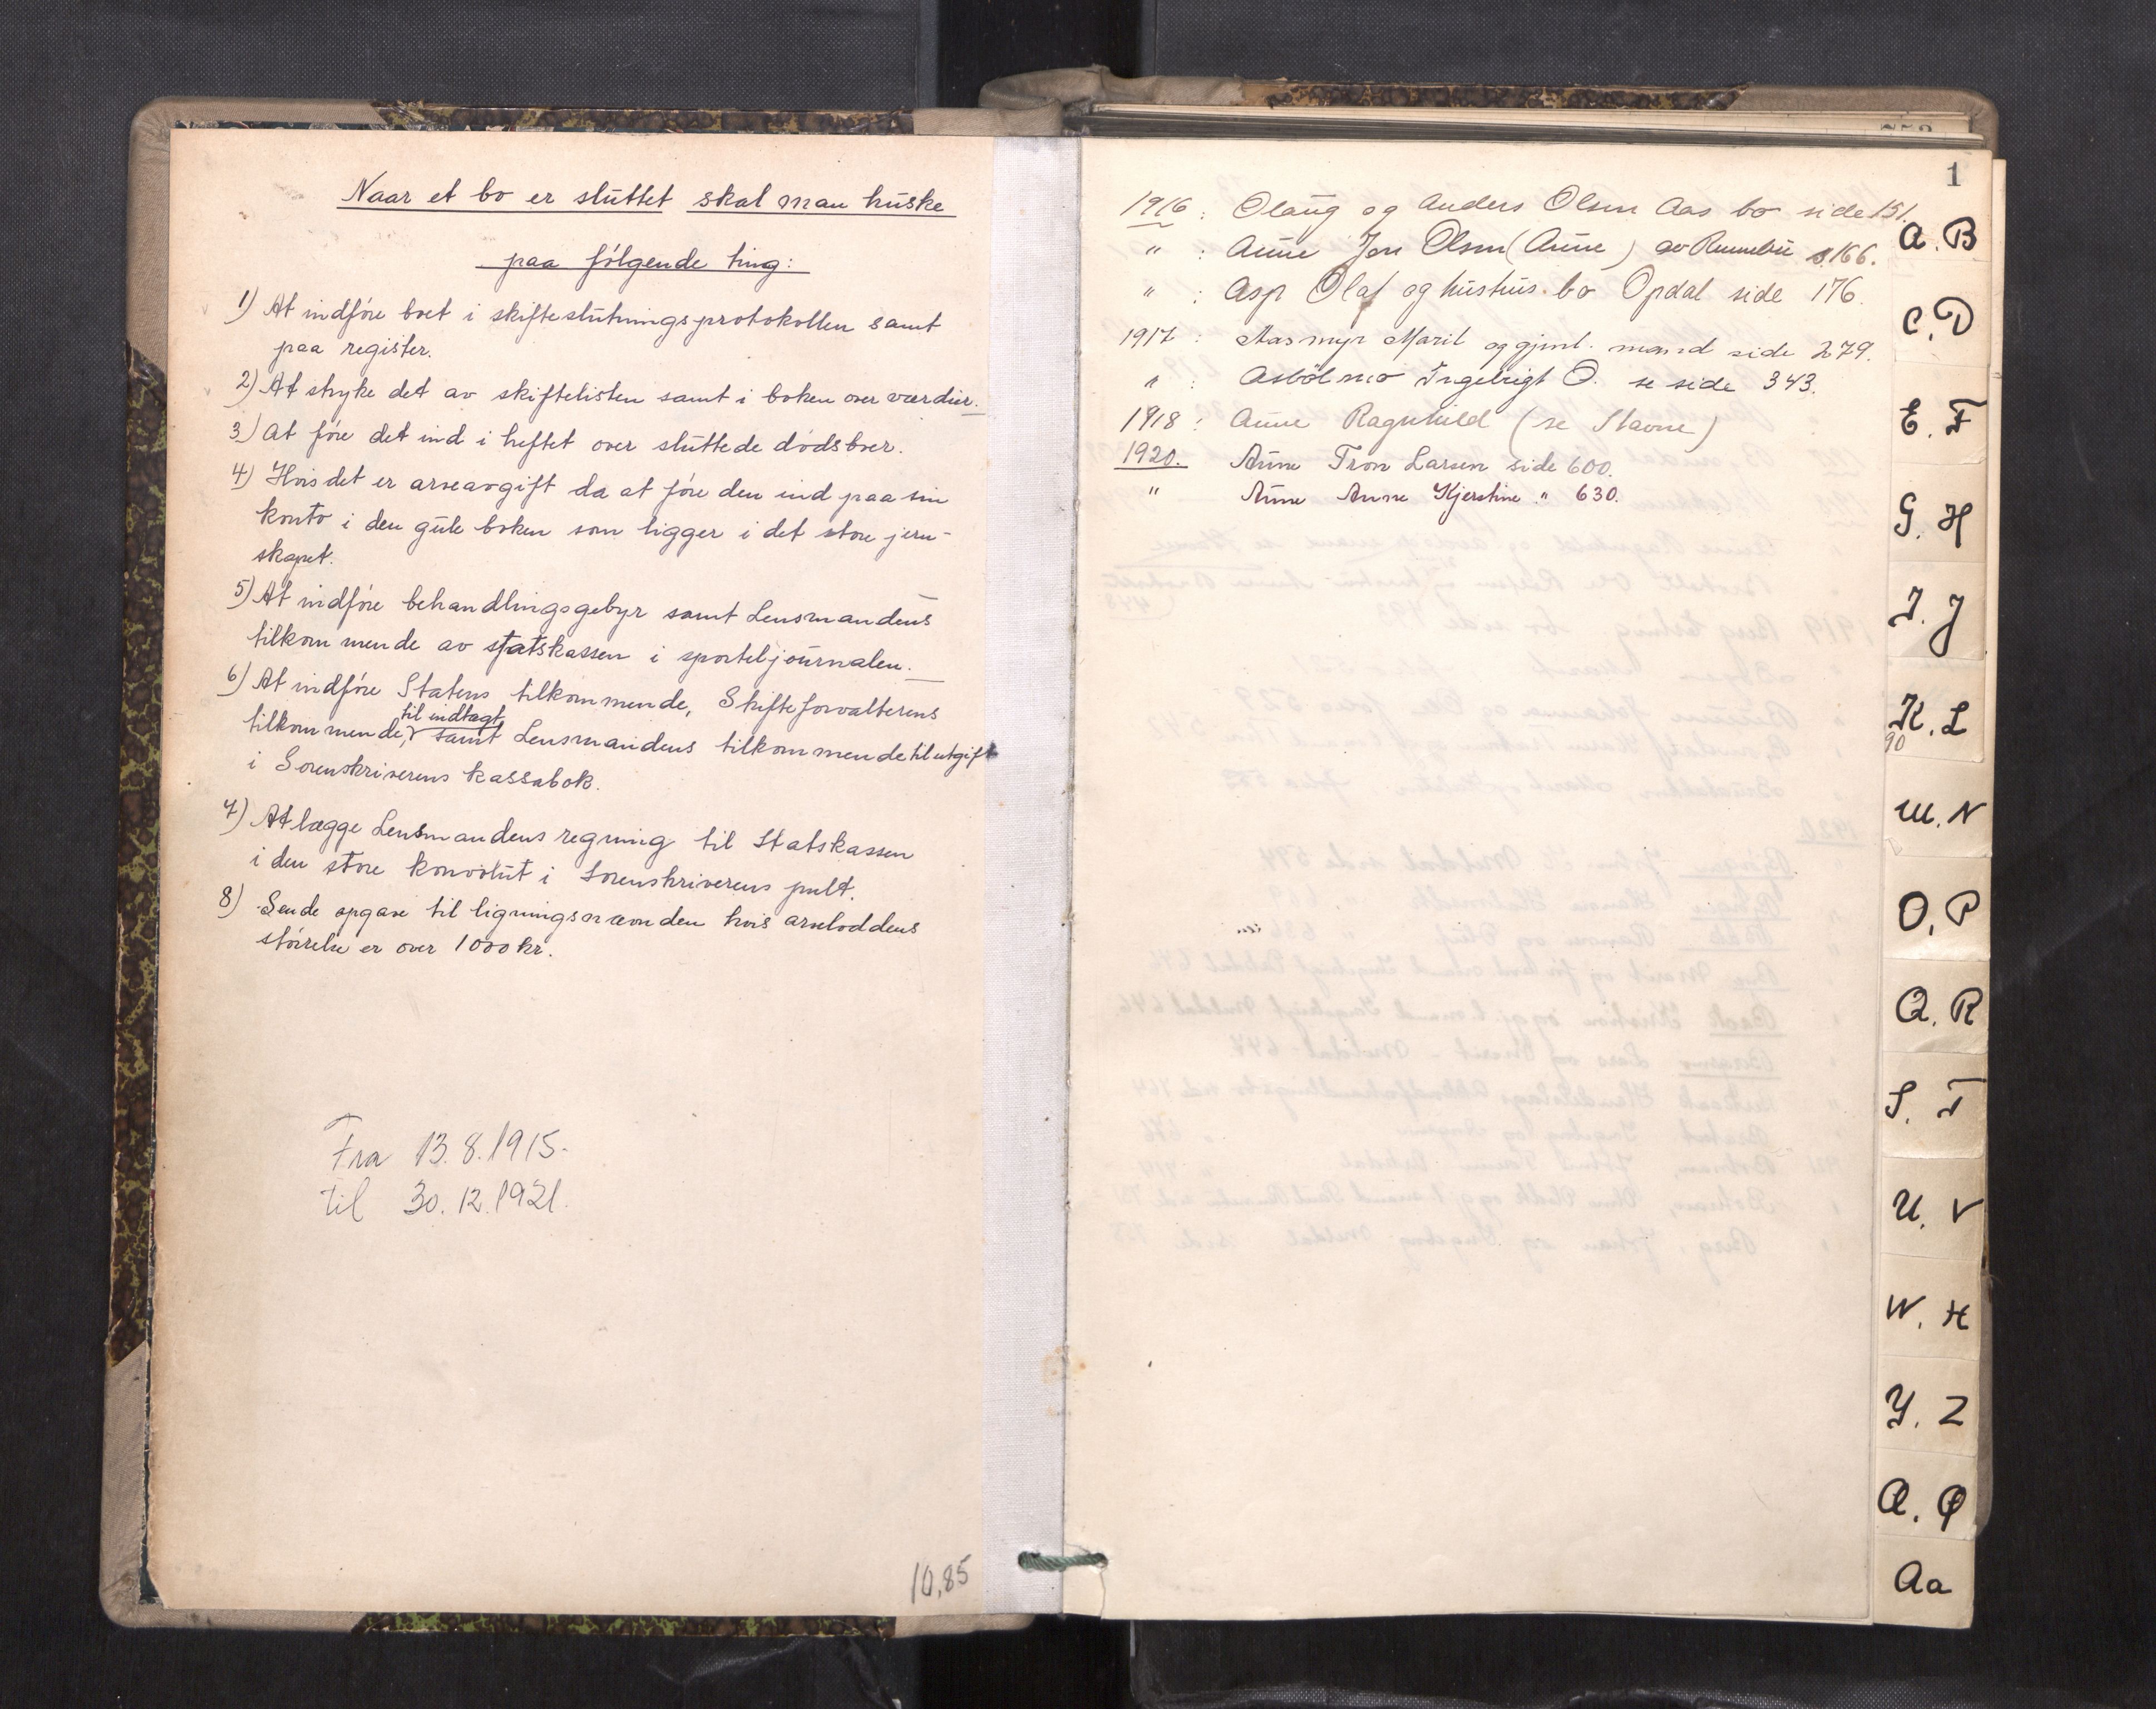 Naar et bo er sluttet skal man huske
paa følgende ting:
1) At indføre boet i skifteslutningsprotokollen samt
paa register.
2) At stryke det av skiftelisten samt i boken over værdier.
3) At føre det ind i heftet over sluttede dødsboer.
4) Hvis det er arveavgift da at føre den ind paa sin
konto i den gule boken som ligger i det store jern-
skapet.
5) At indføre behandlingsgebyr samt Lensmandens
tilkommende av statskassen i sporteljournalen.
6) At indføre Statens tilkommende, Skifteforvalterens
til indtægt
tilkommende, samt Lensmandens tilkommende til utgift
i Sorenskriverens kassabok.
7) At lægge Lensmandens regning til Statskassen
i den store konvolut i Sorenskriverens pult.
8) Sende opgave til ligningsnævnden hvis arveloddens
størrelse er over 1000 kr.
Fra 13.8.1915.
til 30.12.1921.
10,85
1
1916: Olaug og Anders Olsen Aas bo side 151.
" : Aune Jon Olsen (Aune) av Rennebu s. 166.
" : Asp Olaf og hustrus bo Opdal side 176.
1917: Aasmyr Marit og gjenl. mand side 279.
" : Asbølmo Ingebrigt O. se side 343.
1918: Aune Ragnhild (se Stavne)
1920. Aune Tron Larsen side 600.
" Aune Anne Kjerstine " 630.
A. B
C. D
E. F
G. H
I. J
K. L
90
M. N
O. P
Q. R
S. T
U. V
W. X
Y. Z
Æ. Ø
Aa